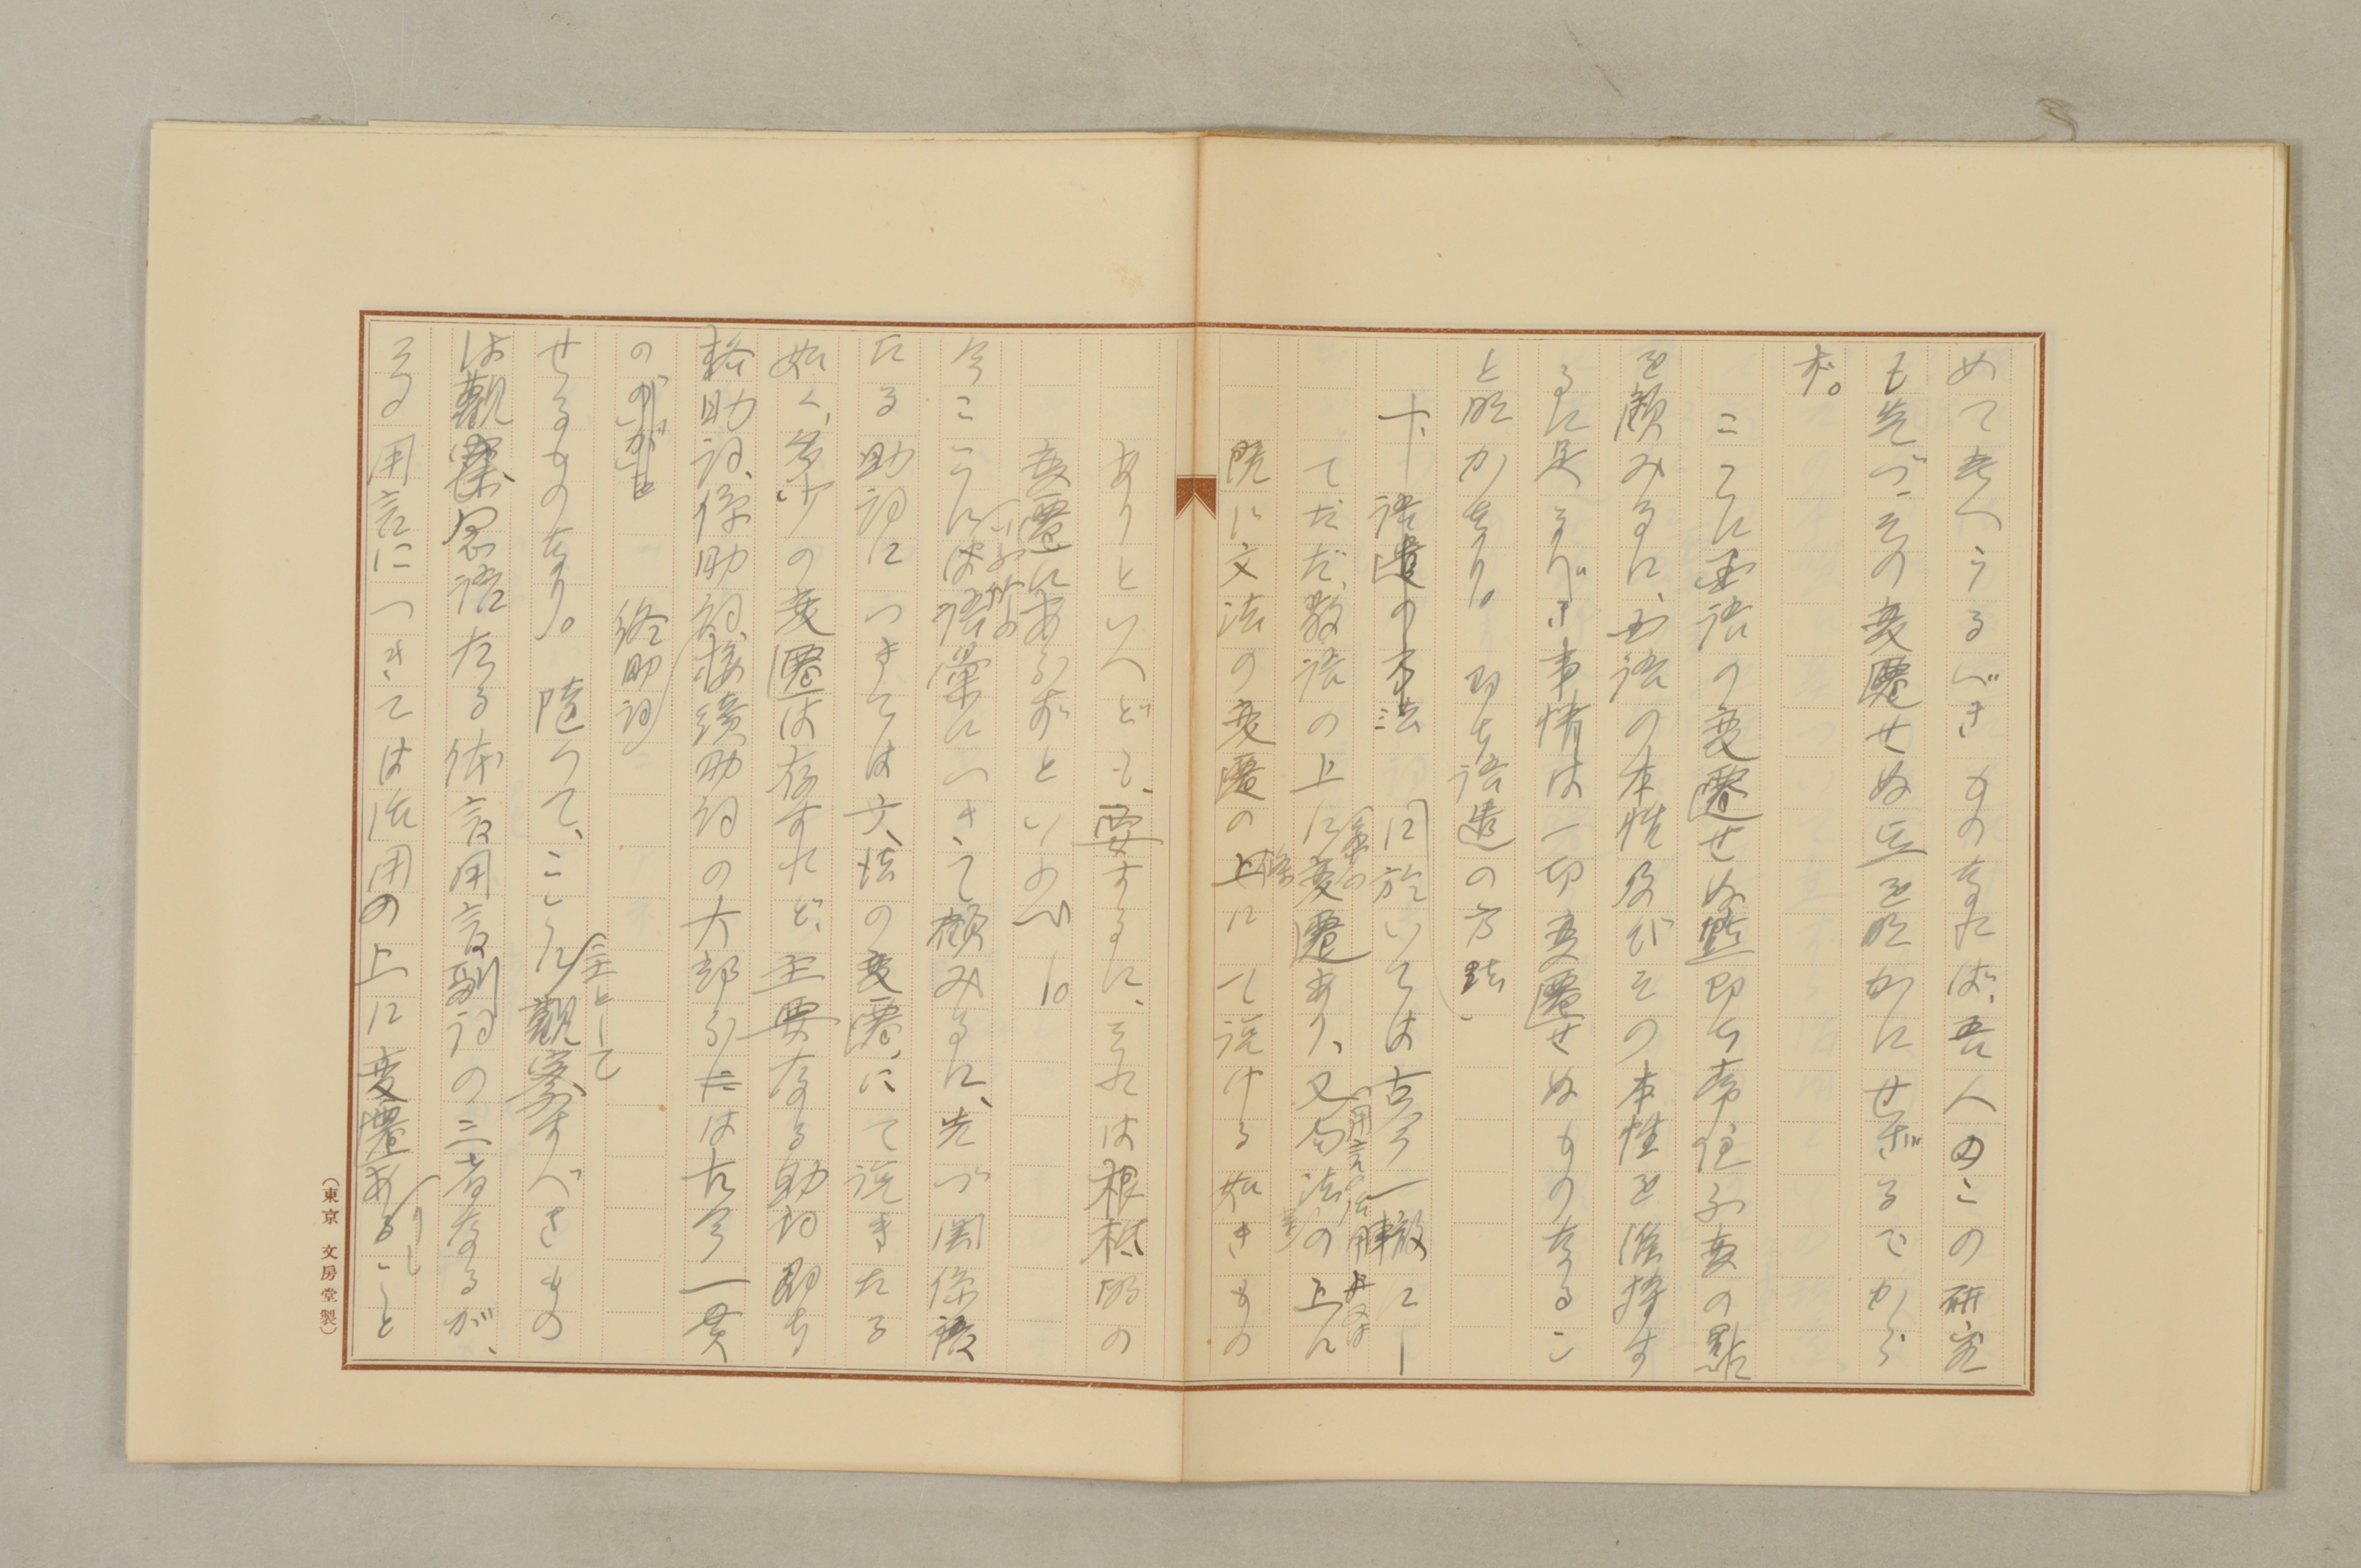 めて考へうるべきものなれば、吾人のこの研究
も先づその変遷せぬ点を明かにせざるでから
ず。
ここに国語の変遷せぬ點即ち常住不変の點
を顧みるに、国語の本性及びその本性を維持す
るに足るべき事情は一切変遷せぬものなるこ
と明かなり。即ち語造の方法
下、語遣の方法に於いては古今一轍にし
てただ、数語の上に変遷あり、又句法の上に
既に文法の変遷の上にて説ける如きもの
ありといへども、要するに、それは根柢的の
変遷にあらずといふべし。
今ここには語彙につきて顧みるに、先づ関係語
たる助詞につきては文法の変遷にて説きたる
如く、多少の変遷は存すれど、主要なる助詞即ち
格助詞、係助詞、接続助詞の大部分は古今一貫
の
終助詞
せるものなり。随って、ここに観察すべきもの
主として
は観念語たる体言用言副詞の三者なるが、
その用言につきては活用の上に変遷あること
(東京 文房堂製)